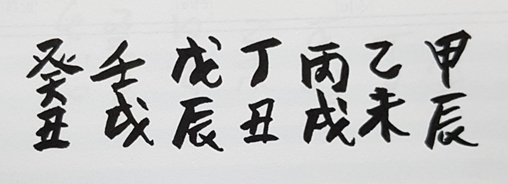 甲辰
乙未
丙戌
丁丑
戊辰
壬戌
癸丑